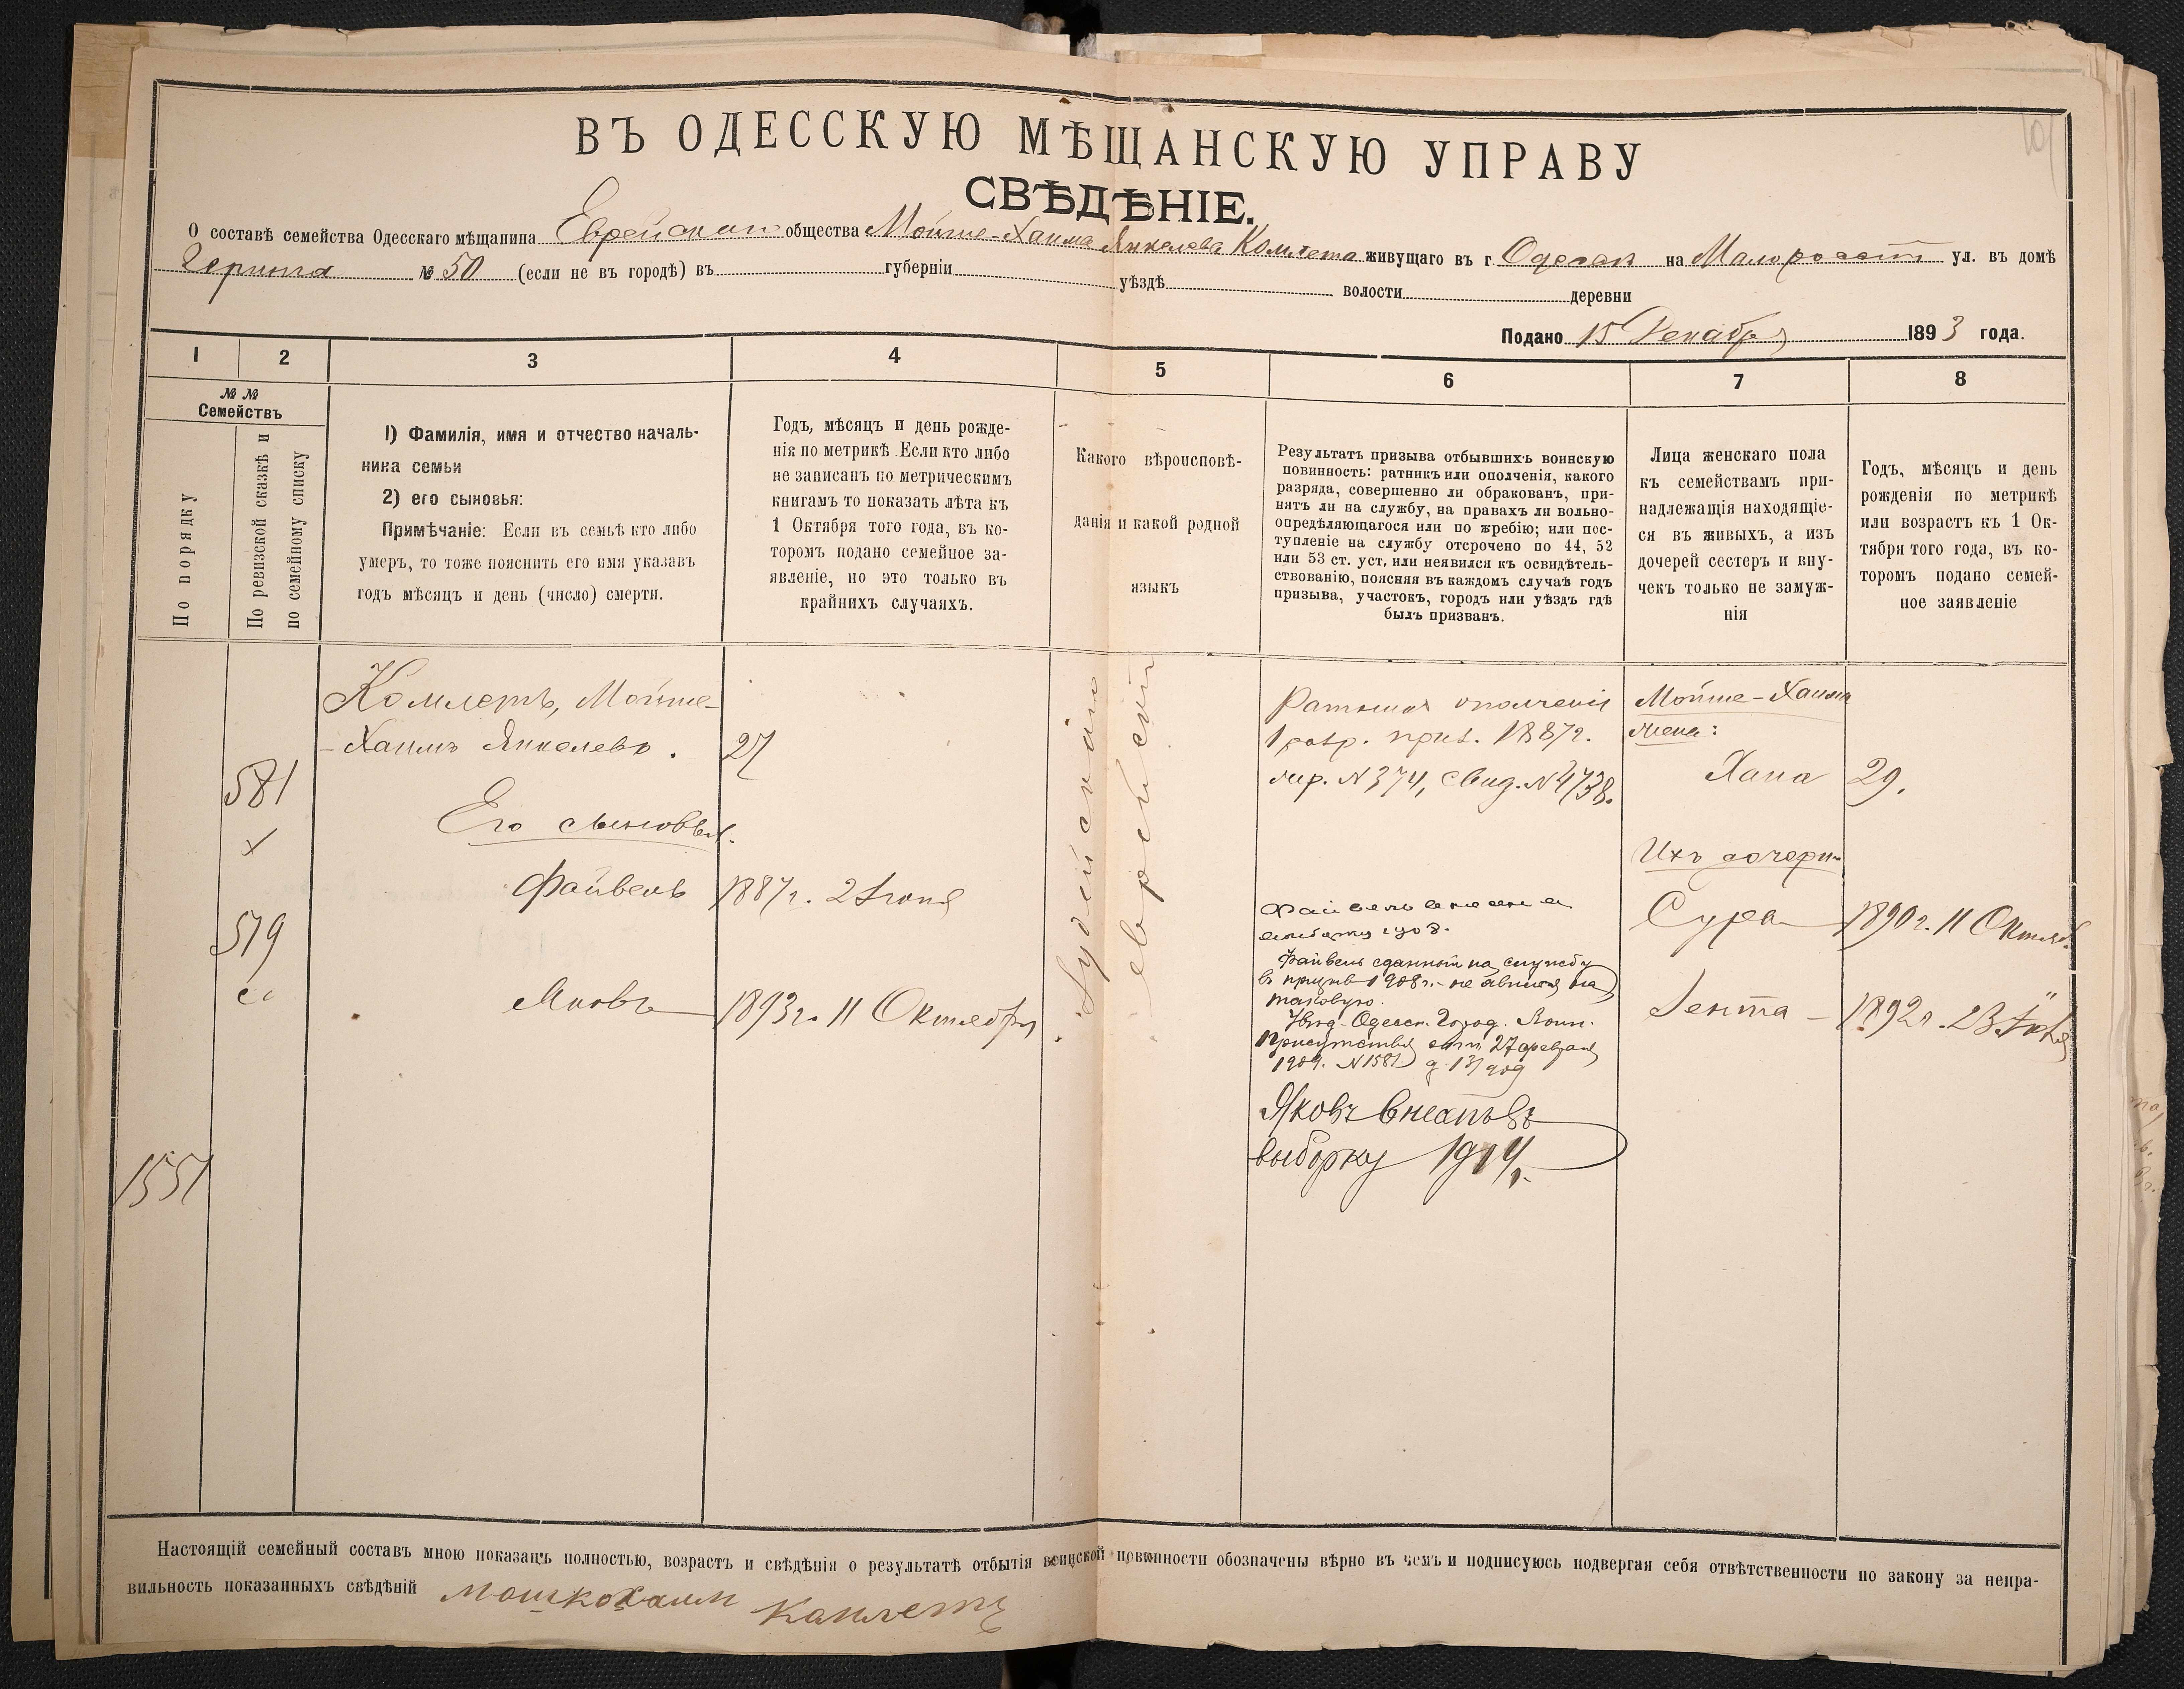 ВЪ ОДЕССКУЮ МѢЩАНСКУЮ УПРАВУ
СВѢДѢНІЕ.
О составѣ семейства Одесскаго мѣщанина Еврейскаго общества Мойше-Хаима Янкелева Комлета живущаго въ г. Одессѣ на Малоросст ул. въ домѣ
№ 50 (если не въ городѣ) въ губерніи уѣздѣ волости деревни
Подано 15 Декабря 1893 года.
1 2 3 4 5 6 7 8
№ №
Семействъ
По порядку
По ревизской сказкѣ и
по семейному списку
1) Фамилія, имя и отчество началь-
ника семьи
2) его сыновья:
Примѣчаніе: Если въ семьѣ кто либо
умеръ, то тоже пояснить его имя указавъ
годъ мѣсяцъ и день (число) смерти.
Годъ, мѣсяцъ и день рожде-
нія по метрикѣ. Если кто либо
не записанъ по метрическимъ
книгамъ то показать лѣта къ
1 Октября того года, въ ко-
торомъ подано семейное за-
явленіе, но это только въ
крайнихъ случаяхъ.
Какого вѣроисповѣ-
данія и какой родной
языкъ
Результатъ призыва отбывшихъ воинскую
повинность: ратникъ или ополченія, какого
разряда, совершенно ли обракованъ, при-
нятъ ли на службу, на правахъ ли вольно-
опредѣляющагося или по жребію; или пос-
тупленіе на службу отсрочено по 44, 52
или 53 ст. уст, или неявился къ освидѣтель-
ствованію, поясняя въ каждомъ случаѣ годъ
призыва, участокъ, городъ или уѣздъ гдѣ
былъ призванъ.
Лица женскаго пола
къ семействамъ при-
надлежащія находящіе-
ся въ живыхъ, а изъ
дочерей сестеръ и вну-
чекъ только не замуж-
нія
Годъ, мѣсяцъ и день
рожденія по метрикѣ
или возрастъ къ 1 Ок-
тября того года, въ ко-
торомъ подано семей-
ное заявленіе
581
519
1551
Комлетъ, Мойше-
-Хаимъ Янкелевъ. 27
Его сыновья.
Файвель 1887 г. 2 Іюня
Яковъ 1893 г. 11 Октября
Іудейскаго
еврейскій
Ратникъ ополченія
1 разр. приз. 1887 г.
жер. № 374, свид. № 4738.
Файвель внесенъ в
выборку 1908.
Файвель сданный на службу
въ призывъ 1908 г. - не явился на
таковую.
Увѣд. Одесск. Город. Воин.
Присутствія отъ 27 февраля
1909. № 1581
Яковъ внесенъ въ
выборку 1914 г.
Мойше-Хаима
жена:
Хана 29.
Ихъ дочери
Сура 1890 г. 11 Октяб.
Гента 1892 г.
Настоящій семейный составъ мною показанъ полностью, возрастъ и свѣдѣнія о результатѣ отбытія воинской повинности обозначены вѣрно въ чемъ и подписуюсь подвергая себя отвѣтственности по закону за непра-
вильность показанныхъ свѣдѣній Мошкохаим Камлетъ